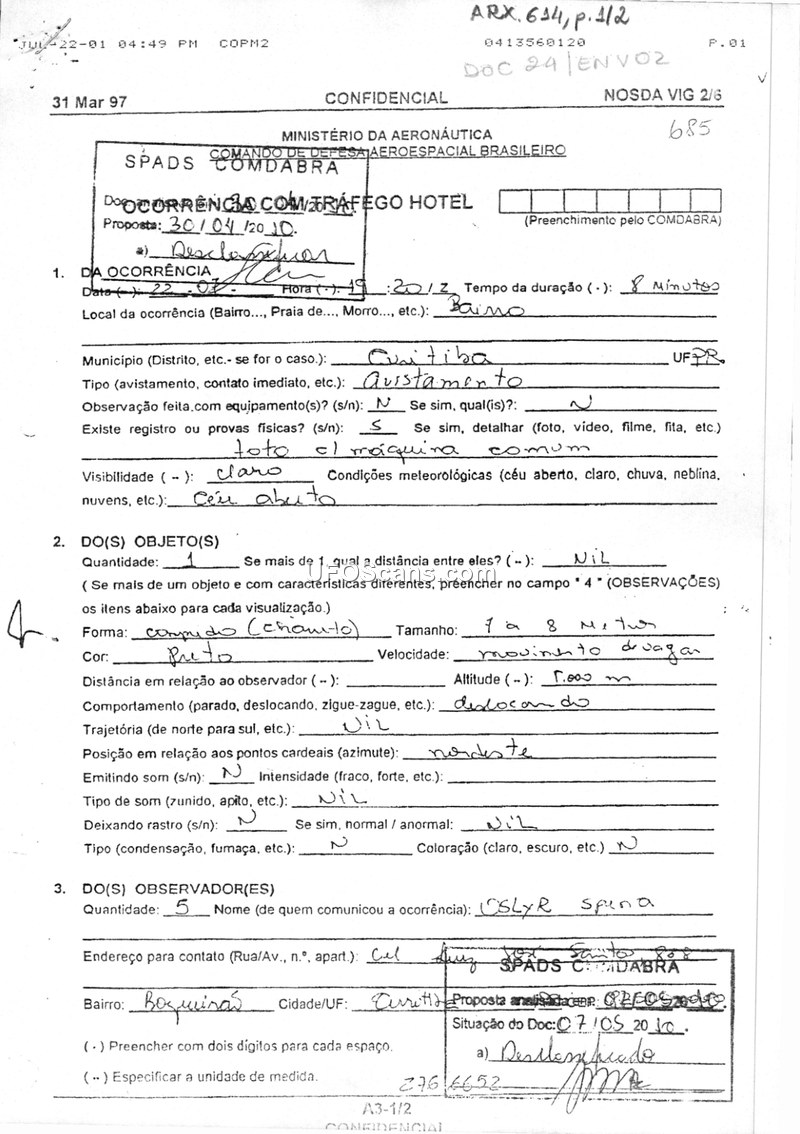 ARX. 614, p. 1/2
JUL-22-01 04:49 PM COPM2 0413560120 P.01
DOC 24 | ENV02
31 Mar 97 CONFIDENCIAL NOSDA VIG 2/6
685
MINISTÉRIO DA AERONÁUTICA
COMANDO DE DEFESA AEROESPACIAL BRASILEIRO
SPADS COMDABRA
OCORRÊNCIA COM TRÁFEGO HOTEL
(Preenchimento pelo COMDABRA)
Proposta: 30/04/2010.
a) Desclassificar
1. DA OCORRÊNCIA
Data (-): 22 - 07 - Hora (·): 19 :20/Z Tempo da duração (·): 8 minutos
Local da ocorrência (Bairro..., Praia de..., Morro..., etc.): Bairro
Município (Distrito, etc.- se for o caso.): Curitiba UF PR
Tipo (avistamento, contato imediato, etc.): avistamento
Observação feita.com equipamento(s)? (s/n): N Se sim, qual(is)?: N
Existe registro ou provas físicas? (s/n): S Se sim, detalhar (foto, vídeo, filme, fita, etc.)
foto c/ máquina comum
Visibilidade ( -- ): claro Condições meteorológicas (céu aberto, claro, chuva, neblina,
nuvens, etc.): Céu aberto
2. DO(S) OBJETO(S)
Quantidade: 1 Se mais de 1, qual a distância entre eles? ( -- ): NIL
UFOScans.com
( Se mais de um objeto e com características diferentes, preencher no campo " 4 " (OBSERVAÇÕES)
os itens abaixo para cada visualização.)
Forma: comprido (charuto) Tamanho: 7 a 8 metros
Cor: Preto Velocidade: movimento devagar
Distância em relação ao observador ( -- ): Altitude ( -- ): 1.000 m
Comportamento (parado, deslocando, zigue-zague, etc.): deslocando
Trajetória (de norte para sul, etc.): NIL
Posição em relação aos pontos cardeais (azimute): nordeste
Emitindo som (s/n): N Intensidade (fraco, forte, etc.):
Tipo de som (zunido, apito, etc.): NIL
Deixando rastro (s/n): N Se sim, normal / anormal: NIL
Tipo (condensação, fumaça, etc.): N Coloração (claro, escuro, etc.) N
3. DO(S) OBSERVADOR(ES)
Quantidade: 5 Nome (de quem comunicou a ocorrência): Spina
Endereço para contato (Rua/Av., n.º, apart.): Cel Luiz José Santos, 808
SPADS COMDABRA
Bairro: Boqueirão Cidade/UF: Curitiba
Proposta analisada
Situação do Doc: 07/05 2010.
( · ) Preencher com dois dígitos para cada espaço.
a) Desclassificado
( -- ) Especificar a unidade de medida.
276 6652
A3-1/2
CONFIDENCIAL